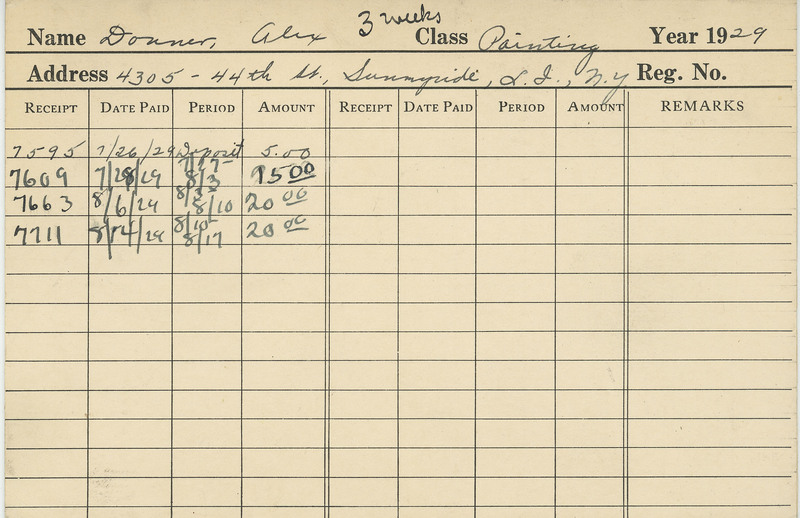 3 weeks
Name Donner, Alex Class Painting Year 1929
Address 4305 - 44th St., Sunnyside, L.I., N.Y Reg. No.
RECEIPT DATE PAID PERIOD AMOUNT RECEIPT DATE PAID PERIOD AMOUNT REMARKS
7595 7/26/29 Deposit 5.00
7609 7/28/29 8/3 15 00
7663 8/6/29 8/3- 8/10 20 00
7711 8/14/29 8/10- 8/17 20 00